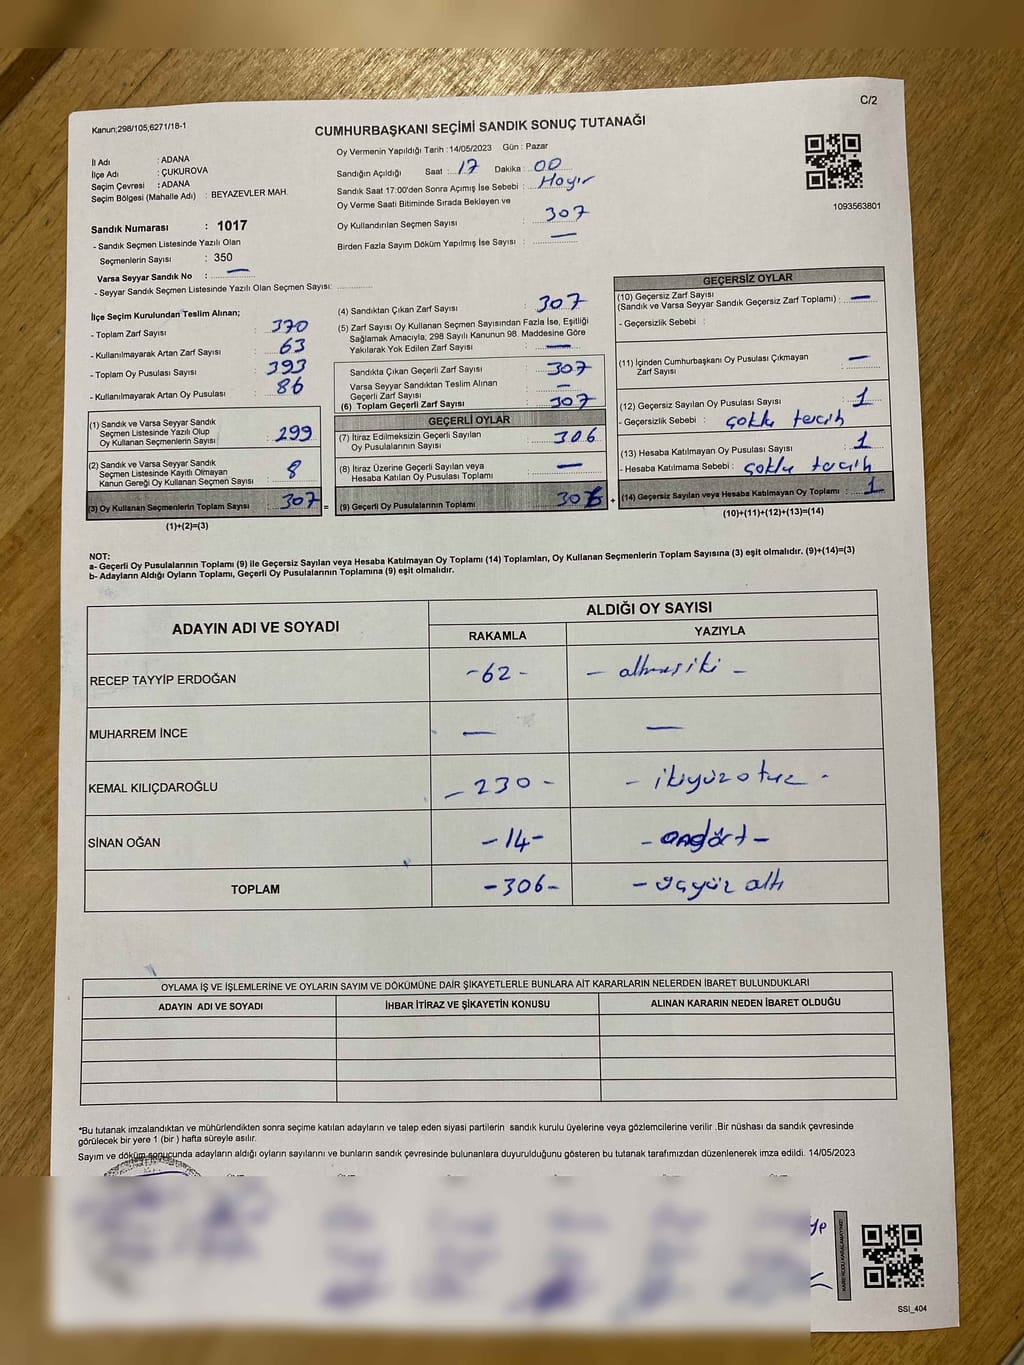 C/2
Kanun;298/105,6271/18-1
CUMHURBAŞKANI SEÇİMİ SANDIK SONUÇ TUTANAĞI
İl Adı : ADANA
İlçe Adı : ÇUKUROVA
Seçim Çevresi : ADANA
Seçim Bölgesi (Mahalle Adı) : BEYAZEVLER MAH.
Sandık Numarası : 1017
- Sandık Seçmen Listesinde Yazılı Olan
Seçmenlerin Sayısı : 350
Varsa Seyyar Sandık No : —
- Seyyar Sandık Seçmen Listesinde Yazılı Olan Seçmen Sayısı:
Oy Vermenin Yapıldığı Tarih : 14/05/2023 Gün : Pazar
Sandığın Açıldığı Saat : 17 Dakika : 00
Sandık Saat 17:00'den Sonra Açımış İse Sebebi : Hayır
Oy Verme Saati Bitiminde Sırada Bekleyen ve
Oy Kullandırılan Seçmen Sayısı : 307
Birden Fazla Sayım Döküm Yapılmış İse Sayısı : —
1093563801
İlçe Seçim Kurulundan Teslim Alınan;
- Toplam Zarf Sayısı : 370
- Kullanılmayarak Artan Zarf Sayısı : 63
- Toplam Oy Pusulası Sayısı : 393
- Kullanılmayarak Artan Oy Pusulası : 86
(1) Sandık ve Varsa Seyyar Sandık
Seçmen Listesinde Yazılı Olup
Oy Kullanan Seçmenlerin Sayısı : 299
(2) Sandık ve Varsa Seyyar Sandık
Seçmen Listesinde Kayıtlı Olmayan
Kanun Gereği Oy Kullanan Seçmen Sayısı : 8
(3) Oy Kullanan Seçmenlerin Toplam Sayısı : 307 =
(1)+(2)=(3)
(4) Sandıktan Çıkan Zarf Sayısı : 307
(5) Zarf Sayısı Oy Kullanan Seçmen Sayısından Fazla İse, Eşitliği
Sağlamak Amacıyla, 298 Sayılı Kanunun 98. Maddesine Göre
Yakılarak Yok Edilen Zarf Sayısı : —
Sandıkta Çıkan Geçerli Zarf Sayısı : 307
Varsa Seyyar Sandıktan Teslim Alınan
Geçerli Zarf Sayısı : —
(6) Toplam Geçerli Zarf Sayısı : 307
GEÇERLİ OYLAR
(7) İtiraz Edilmeksizin Geçerli Sayılan
Oy Pusulalarının Sayısı : 306
(8) İtiraz Üzerine Geçerli Sayılan veya
Hesaba Katılan Oy Pusulası Toplamı : —
(9) Geçerli Oy Pusulalarının Toplamı : 306 +
GEÇERSİZ OYLAR
(10) Geçersiz Zarf Sayısı
(Sandık ve Varsa Seyyar Sandık Geçersiz Zarf Toplamı) : —
- Geçersizlik Sebebi :
(11) İçinden Cumhurbaşkanı Oy Pusulası Çıkmayan
Zarf Sayısı : —
(12) Geçersiz Sayılan Oy Pusulası Sayısı : 1
- Geçersizlik Sebebi : çoklu tercih
(13) Hesaba Katılmayan Oy Pusulası Sayısı : 1
- Hesaba Katılmama Sebebi : çoklu tercih
(14) Geçersiz Sayılan veya Hesaba Katılmayan Oy Toplamı : 1
(10)+(11)+(12)+(13)=(14)
NOT:
a- Geçerli Oy Pusulalarının Toplamı (9) ile Geçersiz Sayılan veya Hesaba Katılmayan Oy Toplamı (14) Toplamları, Oy Kullanan Seçmenlerin Toplam Sayısına (3) eşit olmalıdır. (9)+(14)=(3)
b- Adayların Aldığı Oyların Toplamı, Geçerli Oy Pusulalarının Toplamına (9) eşit olmalıdır.
ADAYIN ADI VE SOYADI
ALDIĞI OY SAYISI
RAKAMLA YAZIYLA
RECEP TAYYİP ERDOĞAN -62- - altmış iki -
MUHARREM İNCE — —
KEMAL KILIÇDAROĞLU - 230 - - ikiyüz otuz -
SİNAN OĞAN -14- - ondört -
TOPLAM -306- - üçyüz altı
OYLAMA İŞ VE İŞLEMLERİNE VE OYLARIN SAYIM VE DÖKÜMÜNE DAİR ŞİKAYETLERLE BUNLARA AİT KARARLARIN NELERDEN İBARET BULUNDUKLARI
ADAYIN ADI VE SOYADI İHBAR İTİRAZ VE ŞİKAYETİN KONUSU ALINAN KARARIN NEDEN İBARET OLDUĞU
*Bu tutanak imzalandıktan ve mühürlendikten sonra seçime katılan adayların ve talep eden siyasi partilerin sandık kurulu üyelerine veya gözlemcilerine verilir .Bir nüshası da sandık çevresinde
görülecek bir yere 1 (bir ) hafta süreyle asılır.
Sayım ve döküm sonucunda adayların aldığı oyların sayılarını ve bunların sandık çevresinde bulunanlara duyurulduğunu gösteren bu tutanak tarafımızdan düzenlenerek imza edildi. 14/05/2023
SSI_404